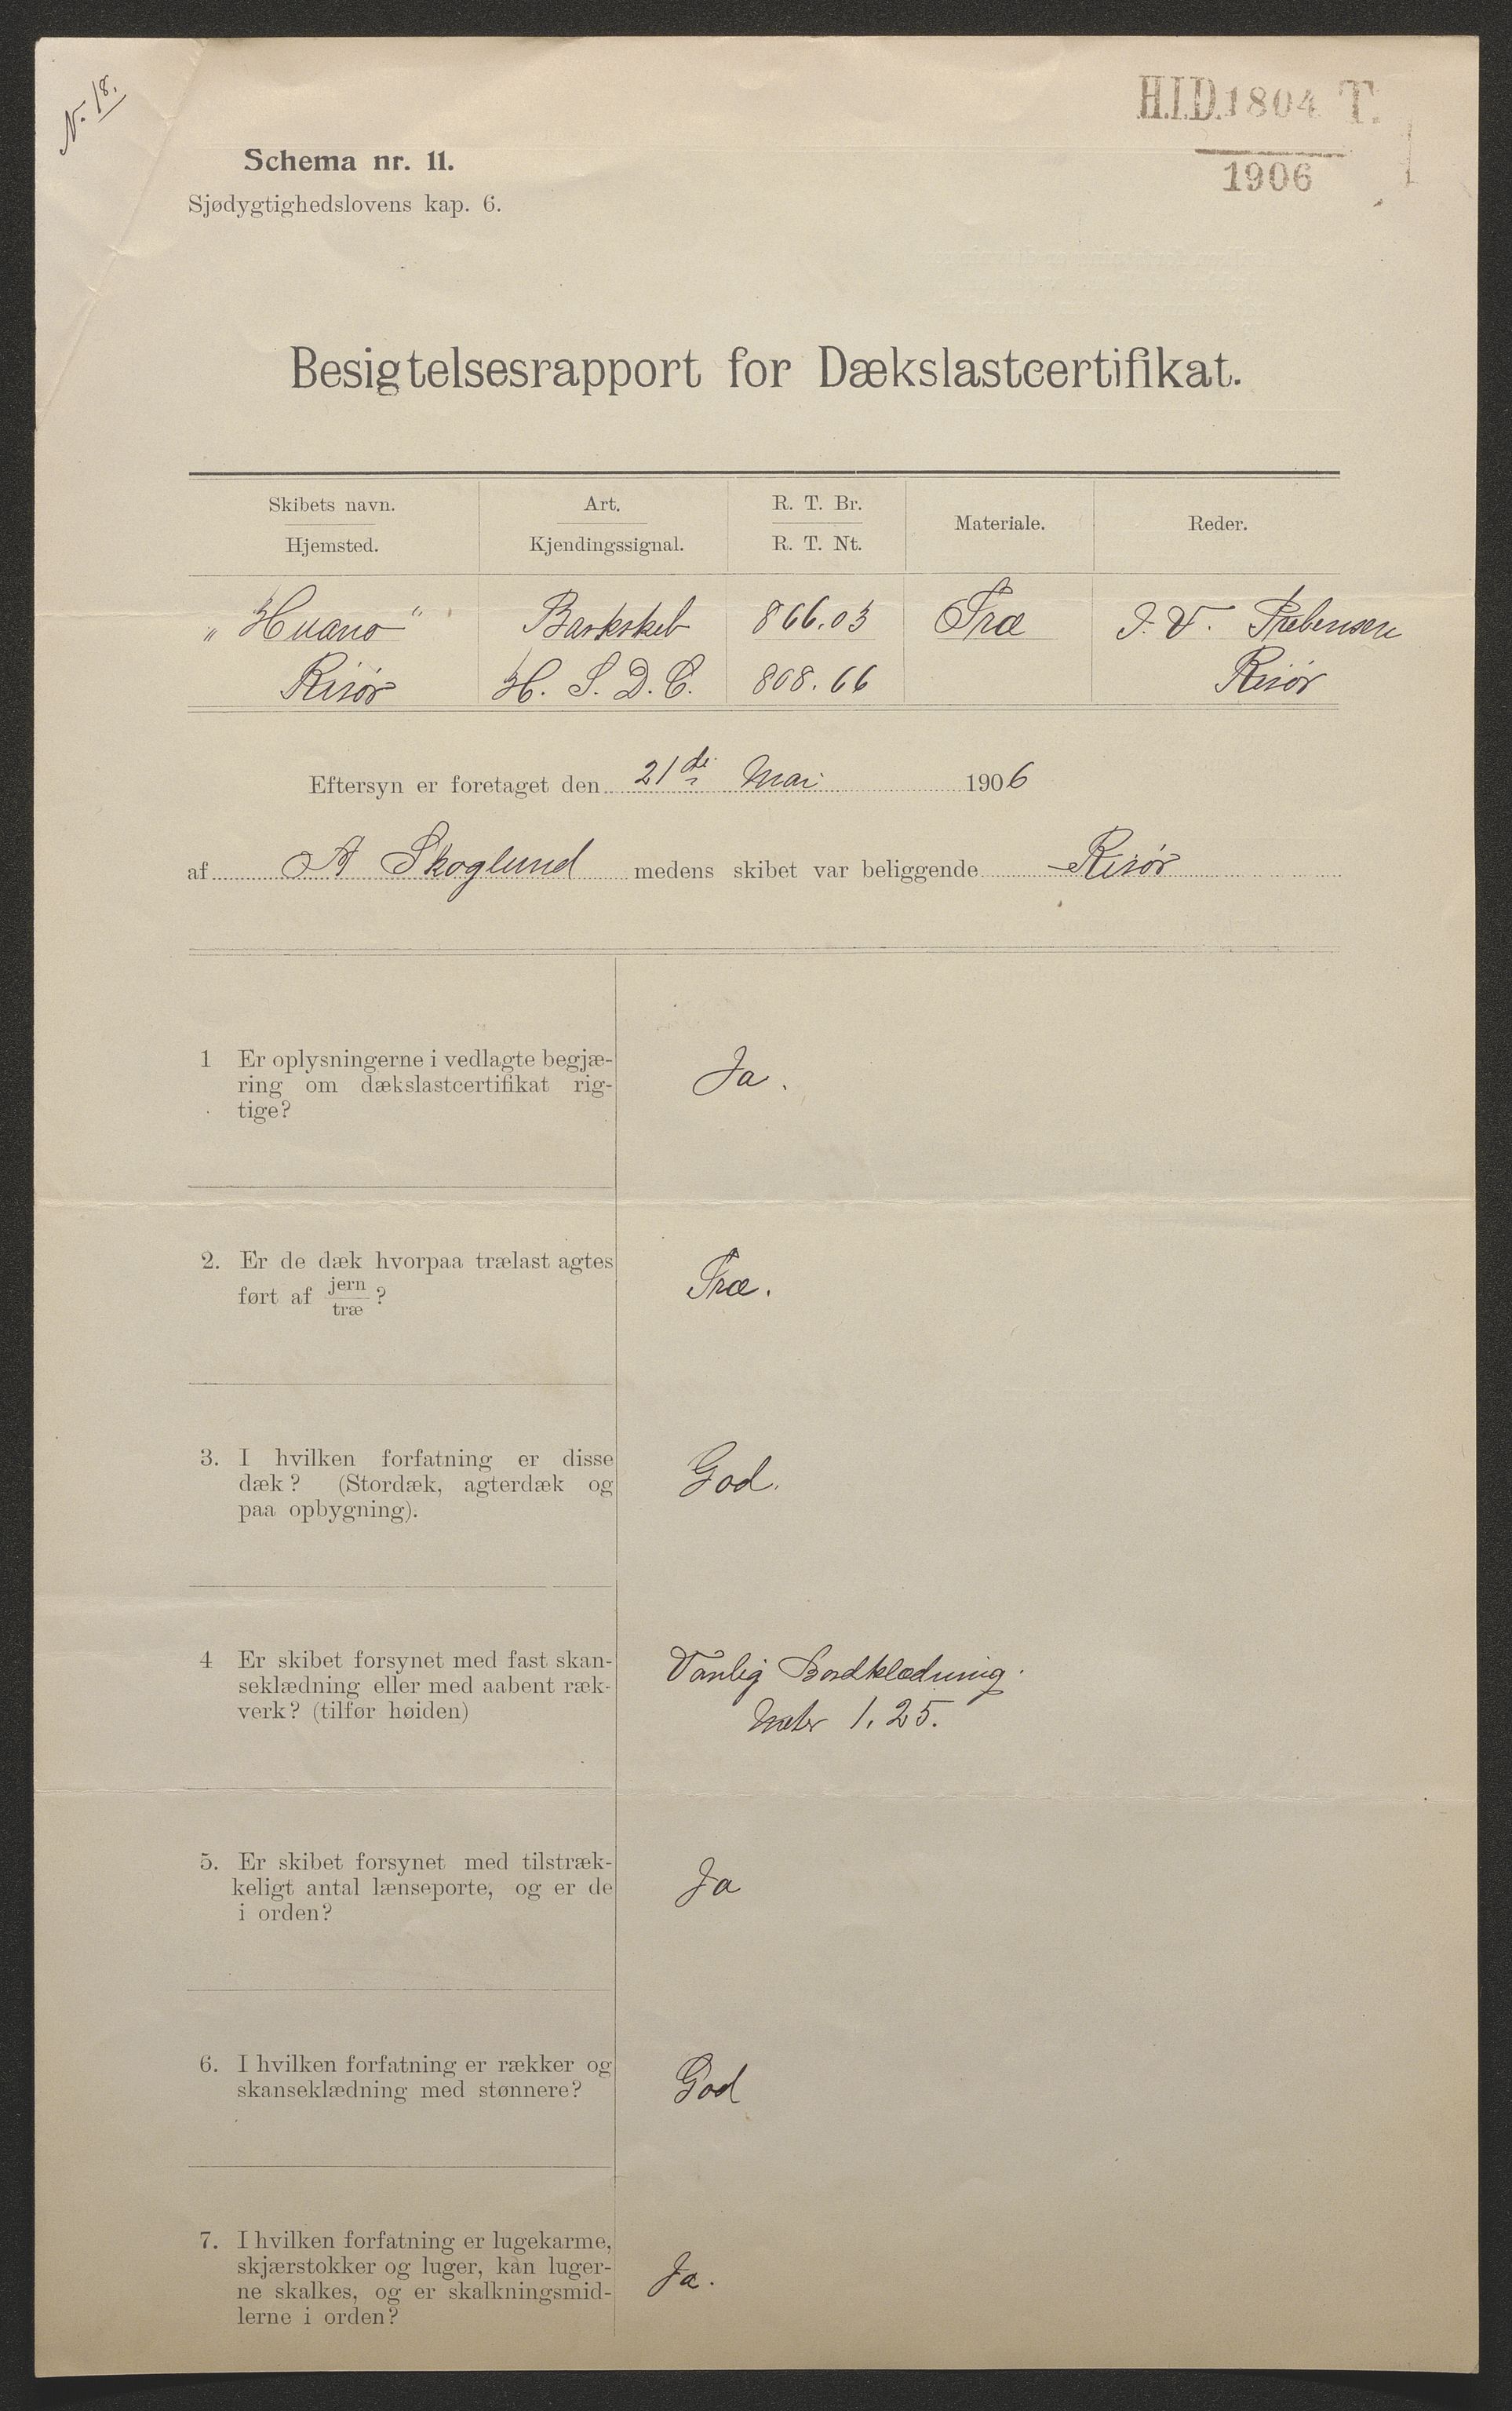 N. 18.
H.I.D. 1804 T.
1906
Schema nr. 11.
Sjødygtighedslovens kap. 6.
Besigtelsesrapport for Dækslastcertifikat.
Skibets navn. Art. R. T. Br. Materiale. Reder.
Hjemsted. Kjendingssignal. R. T. Nt.
„Huano“ Barkskib 866.03 Træ J. V. Prebensen
Risør H. S. D. C. 808.66 Risør
Eftersyn er foretaget den 21de Mai 1906
af A Skoglund medens skibet var beliggende Risør
1 Er oplysningerne i vedlagte begjæ-
ring om dækslastcertifikat rig-
tige?
Ja.
2. Er de dæk hvorpaa trælast agtes
ført af jern/træ?
Træ.
3. I hvilken forfatning er disse
dæk? (Stordæk, agterdæk og
paa opbygning).
God.
4 Er skibet forsynet med fast skan-
seklædning eller med aabent ræk-
verk? (tilfør høiden)
Vanlig Bordklædning.
Meter 1.25.
5. Er skibet forsynet med tilstræk-
keligt antal lænseporte, og er de
i orden?
Ja
6. I hvilken forfatning er rækker og
skanseklædning med stønnere?
God
7. I hvilken forfatning er lugekarme,
skjærstokker og luger, kan luger-
ne skalkes, og er skalkningsmid-
lerne i orden?
Ja.